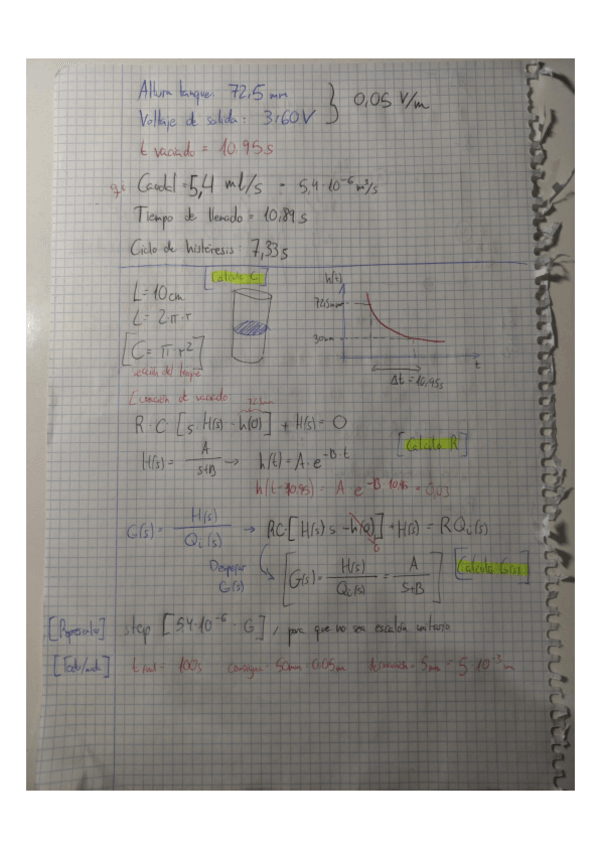 Altura tanque: 72,5 mm
Voltaje de salida: 3,60V } 0,05 V/m
t vaciado = 10.95 s
qi Caudal = 5,4 ml/s = 5,4·10⁻⁶ m³/s
Tiempo de llenado = 10,89 s
Ciclo de histéresis: 7,33 s
Calculo C
L = 10 cm
L = 2π·r
[C = π·r²]
sección del tanque
h(t)
72,5mm
30mm
t
Δt = 10,95s
Ecuación de vaciado
72,5mm
R·C [s·H(s) - h(0)] + H(s) = 0
[Calculo R]
H(s) = A/(s+B) → h(t) = A·e^(-B·t)
h(t=10.95) = A·e^(-B·10.95) = 0,03
G(s) = H(s)/Qi(s) → RC·[H(s)s - h(0)] + H(s) = R Qi(s)
Despejar
G(s)
[G(s) = H(s)/Qi(s) = A/(s+B)]
[Calculo G(s)]
[Representa] step [5,4·10⁻⁶·G], para que no sea escalón unitario
t = 100s consigna = 50mm = 0.05m = 5mm = 5·10⁻³ m